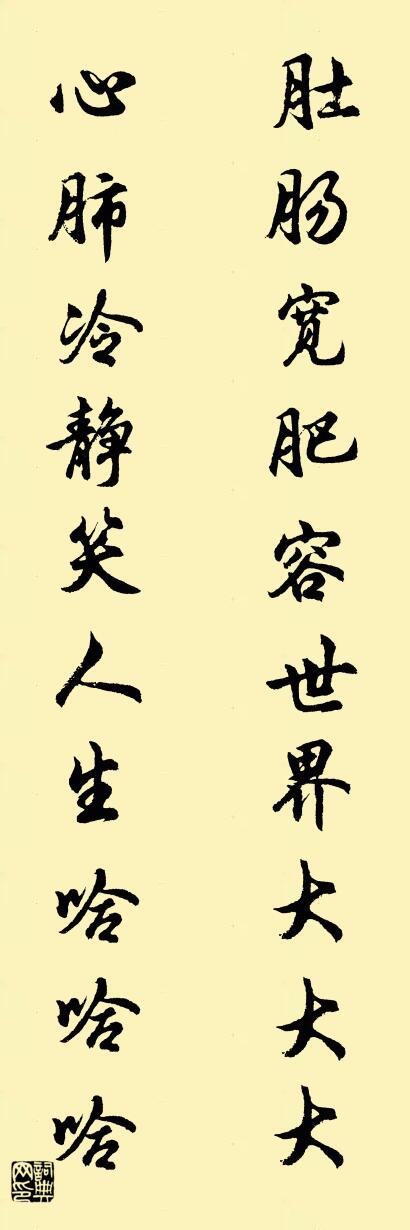 肚肠宽肥容世界大大大
心肺冷静笑人生哈哈哈
詞典
网印